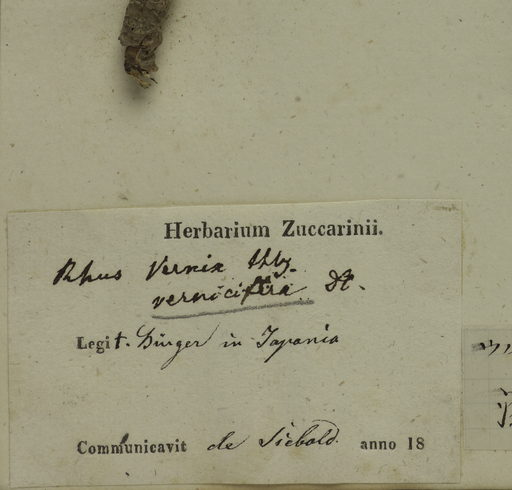 Herbarium Zuccarinii.
Rhus Vernix Thbg.
vernicifera DC.
Legit. Bürger in Japonia
Communicavit de Siebold. anno 18